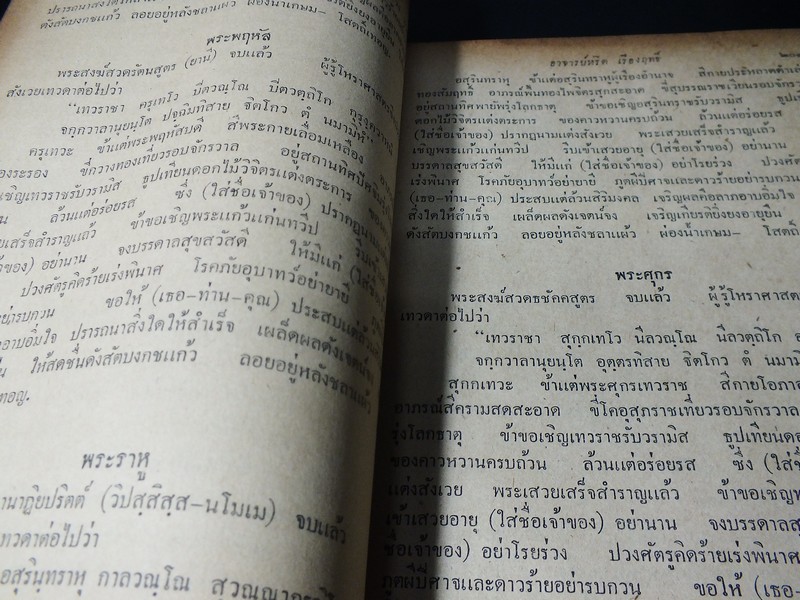 ปรารถนาสิ่งใดให้สำเร็จ
ดังสัตบงกชแก้ว ลอยอยู่หลังชลาแผ้ว ผ่องน้ำเกษม- โสตถิ์เทอญ
พระพฤหัส
พระสงฆ์สวดรัตนสูตร (ยานี) จบแล้ว ผู้รู้โหราศาสตร์
สังเวยเทวดาต่อไปว่า
“เทวราชา ครุเทโว ปีตวณฺโณ ปีตวตฺถิโก
จกฺกวาลานุยนฺโต ปจฺฉิมทิสาย ฐิตโกว ตํ นมามิหํ”
ครูเทวะ ข้าแต่พระพฤหัสบดี สีพระกายเลื่อมเหลือง
องระรอง ขี่กวางทองเที่ยวรอบจักรวาล อยู่สถานทิศ
เชิญเทวราชรับวรามิส ธูปเทียนดอกไม้วิจิตรแต่งตระการ
ล้วนแต่อร่อยรส ซึ่ง (ใส่ชื่อเจ้าของ) ปรากฏนาม
ยเสร็จสำราญแล้ว ข้าขอเชิญพระแก้วแก่นทวีป
ของ) อย่านาน จงบรรดาลสุขสวัสดี ให้มีแก่
ปวงศัตรูคิดร้ายเร่งพินาศ โรคภัยอุบาทว์อย่ายายี
ย่ารบกวน ขอให้ (เธอ-ท่าน-คุณ) ประสบแต่ล้วน
าอาบอิ่มใจ ปรารถนาสิ่งใดให้สำเร็จ เผล็ดผลดังเจตน์
ให้สดชื่นดังสัตบงกชแก้ว ลอยอยู่หลังชลาแผ้ว
ทอญ.
พระราหู
านาฏิยปริตต์ (วิปสฺสิสฺส-นโมเม) จบแล้ว
ทวดาต่อไปว่า
อสุรินฺทราหุ กาลวณฺโณ
อาจารย์หริต เรืองฤทธิ์
อสุรินทราหุ ข้าแต่อสุรินทราหุผู้เรืองอำนาจ สีกายประหลาดดำ
ทองสัมฤทธิ์ อาภรณ์พื้นทองไพจิตรสุกสะอาด ขี่สุบรรณราชเวียนรอบจักร
อยู่สถานทิศพายัพรุ่งโลกธาตุ ข้าขอเชิญอสุรินทราชรับวรามิส
ดอกไม้วิจิตรแต่งตระการ ของคาวหวานครบถ้วน ล้วนแต่อร่อยรส
(ใส่ชื่อเจ้าของ) ปรากฏนามแต่งสังเวย พระเสวยเสร็จสำราญแล้ว
เชิญพระแก้วแก่นทวีป รีบเข้าเสวยอายุ (ใส่ชื่อเจ้าของ) อย่านาน
บรรดาลสุขสวัสดี ให้มีแก่ (ใส่ชื่อเจ้าของ) อย่าโรยร่วง ปวงศัตรู
เร่งพินาศ โรคภัยอุบาทว์อย่ายายี ภูตผีปีศาจและดาวร้ายอย่ารบกวน
(เธอ-ท่าน-คุณ) ประสบแต่ล้วนสิริมงคล เจริญผลคือลาภอาบอิ่มใจ
สิ่งใดให้สำเร็จ เผล็ดผลดังเจตน์จง เจริญเกียรติยิ่งยงอายุยืน
ดังสัตบงกชแก้ว ลอยอยู่หลังชลาแผ้ว ผ่องน้ำเกษม-
พระศุกร
พระสงฆ์สวดธชัคคสูตร จบแล้ว ผู้รู้โหราศาสตร์
เทวดาต่อไปว่า
“เทวราชา สุกฺกเทโว นีลวณฺโณ นีลวตฺถิโก
จกฺกวาลานุยนฺโต อุตฺตรทิสาย ฐิตโกว ตํ นมามิ
สุกกเทวะ ข้าแต่พระศุกรเทวราช สีกายโอภา
อาภรณ์สีครามสดสะอาด ขี่โคอุสุภราชเที่ยวรอบจักรวาล
รุ่งโลกธาตุ ข้าขอเชิญเทวราชรับวรามิส ธูปเทียนดอ
ของคาวหวานครบถ้วน ล้วนแต่อร่อยรส ซึ่ง (ใส่
แต่งสังเวย พระเสวยเสร็จสำราญแล้ว ข้าขอเชิญ
เข้าเสวยอายุ (ใส่ชื่อเจ้าของ) อย่านาน จงบรรดาล
ชื่อเจ้าของ) อย่าโรยร่วง ปวงศัตรูคิดร้ายเร่งพินาศ
ภูตผีปีศาจและดาวร้ายอย่ารบกวน ขอให้ (เธอ-